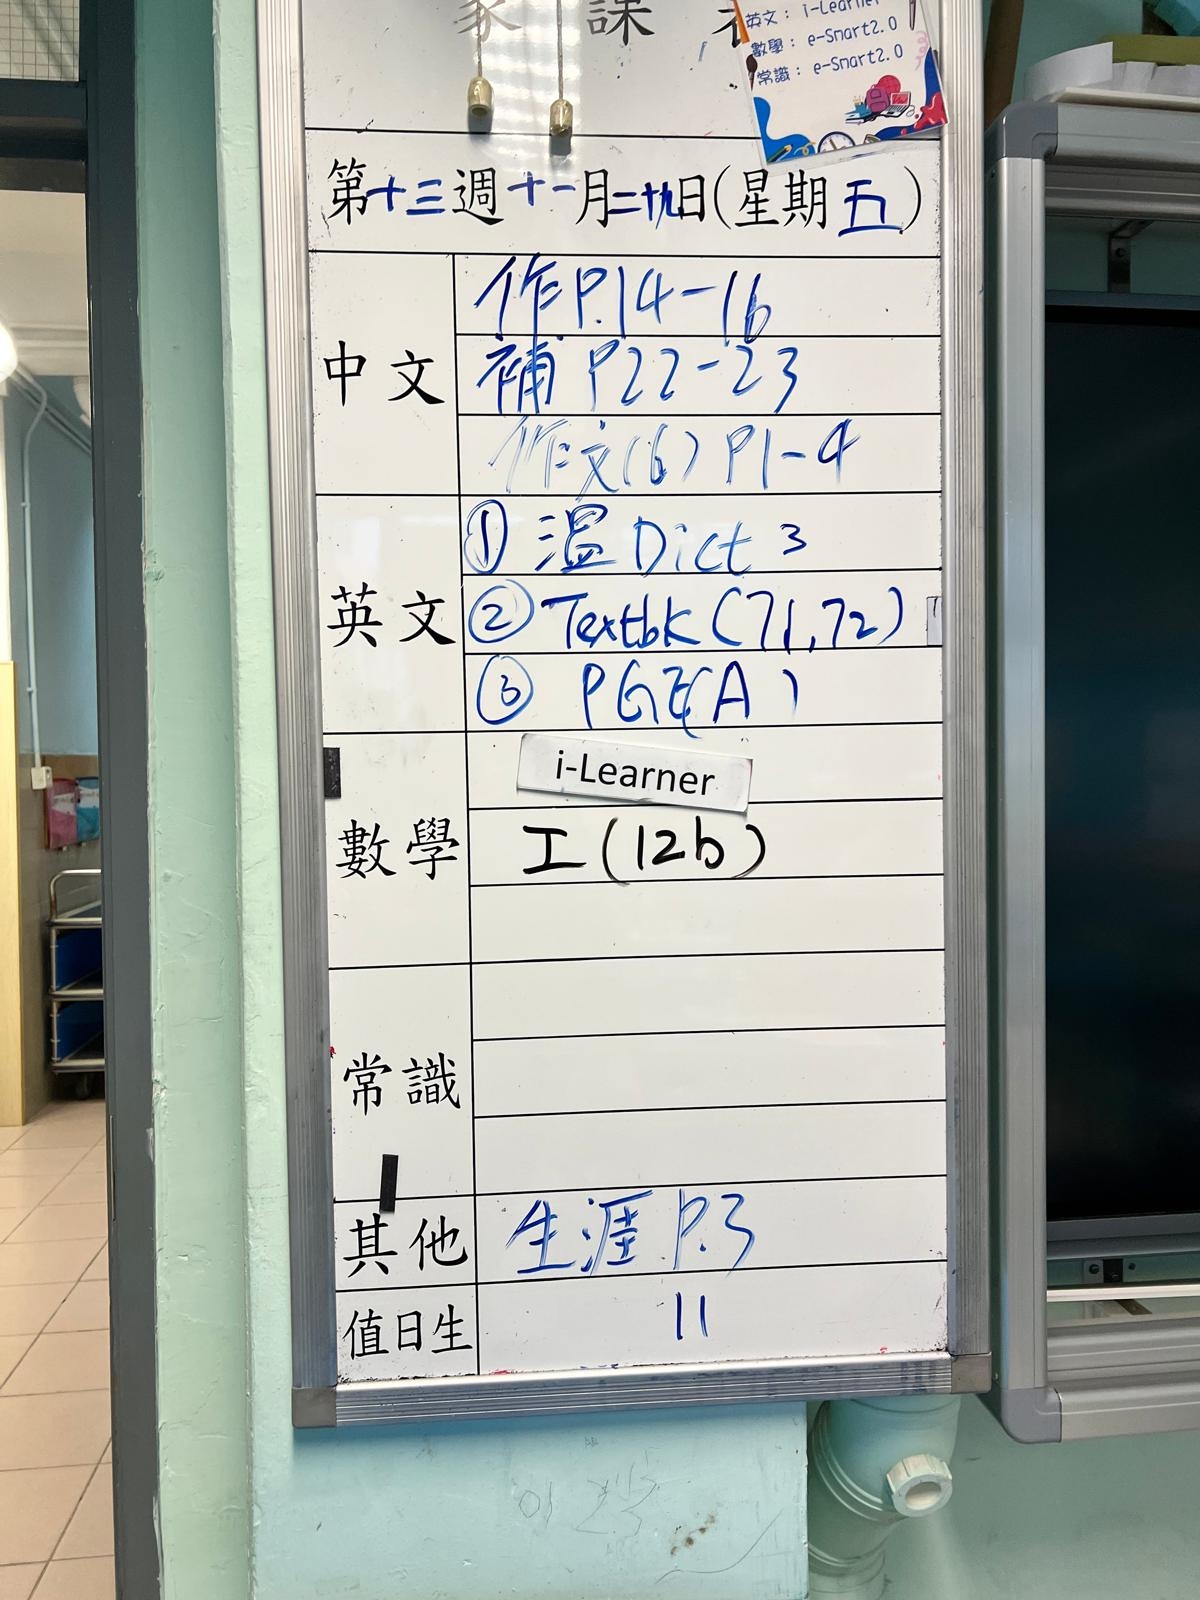 家課表
英文： i-Learner
數學： e-Smart2.0
常識： e-Smart2.0
第十三週十一月二十九日(星期五)
中文
作P.14-16
補 P22-23
作文(6) P1-4
英文
① 溫 Dict 3
② Textbk (71,72)
③ PGE(A)
數學
i-Learner
工(12b)
常識
其他
生涯 P.3
值日生
11